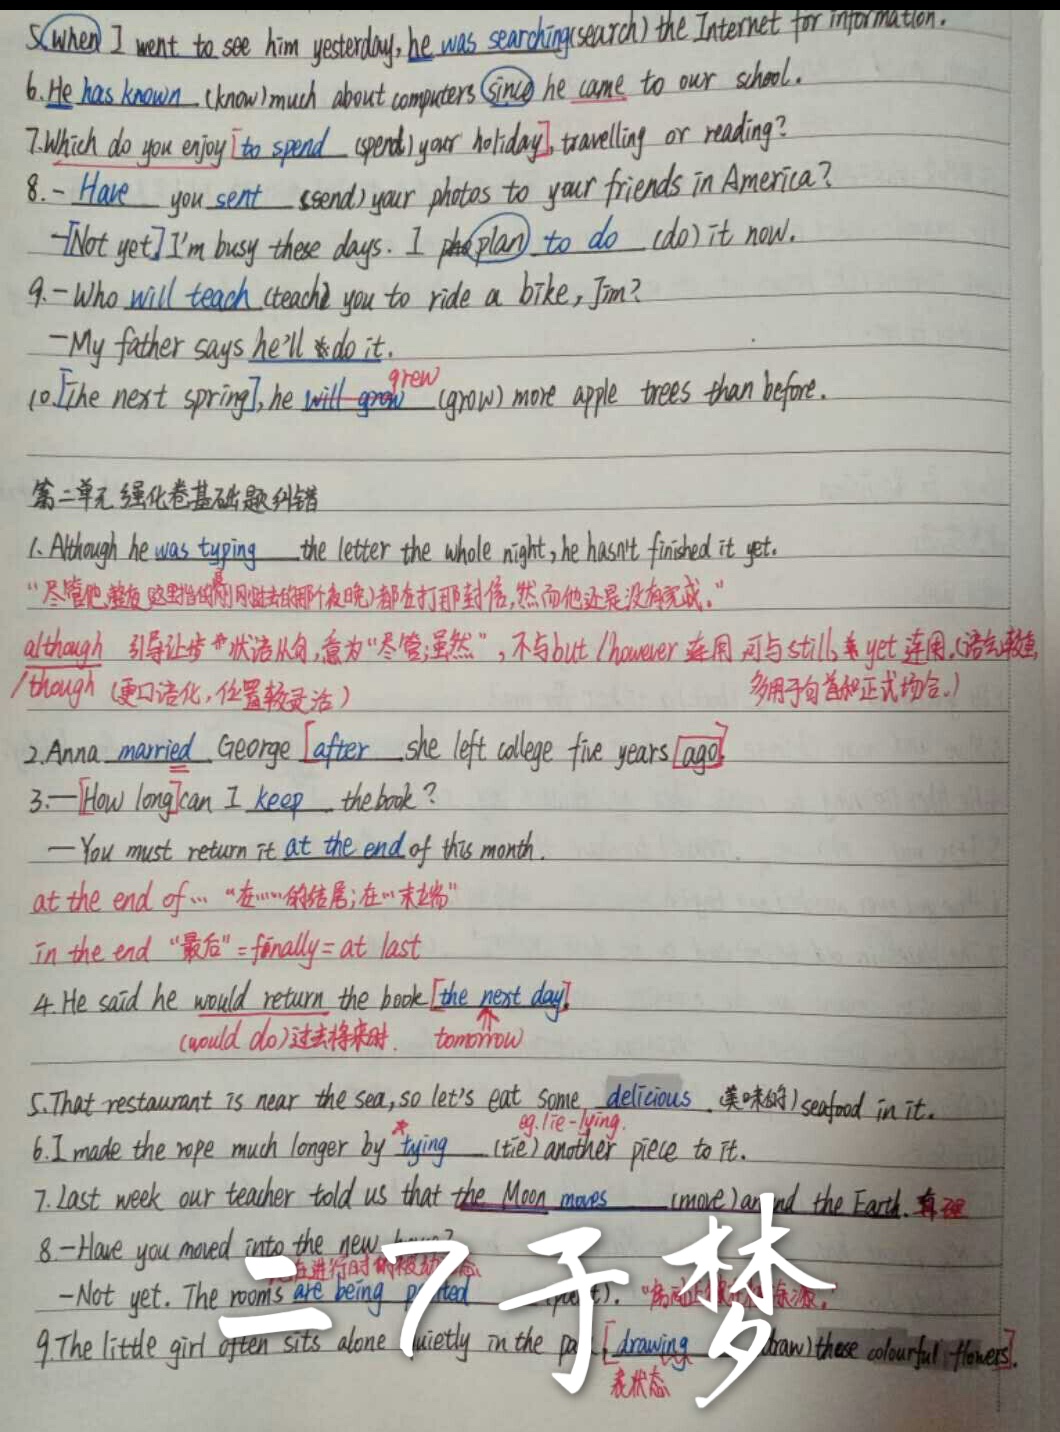 5. When I went to see him yesterday, he was searching (search) the Internet for information.
6. He has known (know) much about computers since he came to our school.
7. Which do you enjoy [to spend (spend) your holiday], travelling or reading?
8. - Have you sent (send) your photos to your friends in America?
- [Not yet.] I'm busy these days. I plan to do (do) it now.
9. - Who will teach (teach) you to ride a bike, Jim?
- My father says he'll do it.
grew
10. [The next spring], he will grow (grow) more apple trees than before.
第二单元 强化卷基础题纠错
1. Although he was typing the letter the whole night, he hasn't finished it yet.
"尽管他整夜(这里指的是刚刚过去的那个夜晚)都在打那封信,然而他还是没有完成."
although 引导让步状语从句,意为"尽管;虽然", 不与but/however 连用,可与still, yet 连用.(语气较重,
/though (更口语化,位置较灵活) 多用于句首和正式场合.)
2. Anna married George [after she left college five years ago]
3. — [How long] can I keep the book?
— You must return it at the end of this month.
at the end of… "在……的结尾;在…末端"
in the end "最后" = finally = at last
4. He said he would return the book [the next day].
(would do) 过去将来时. tomorrow
5. That restaurant is near the sea, so let's eat some delicious (美味的) seafood in it.
eg. lie - lying.
6. I made the rope much longer by *tying (tie) another piece to it.
7. Last week our teacher told us that the Moon moves (move) around the Earth. 真理
8. - Have you moved into the new
在进行时的被动
- Not yet. The rooms are being painted
9. The little girl often sits alone quietly in the [drawing draw) these colourful flowers].
表状态
二7子梦